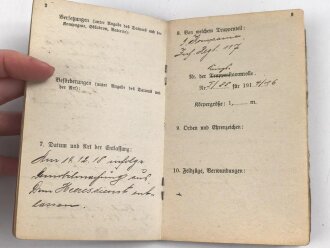 2
Versetzungen (unter Angabe des Datums und der
Kompagnie, Eskadron, Batterie):
Beförderungen (unter Angabe des Datums und
der Art):
7. Datum und Art der Entlassung:
Am 18.12.18 infolge
Demobilmachung aus
dem Heeresdienst ent-
lassen.
3
8. Von welchem Truppenteil:
Inf. Regt. 117
Nr. der Truppenstammrolle:
für 191
Körpergröße: 1, m.
9. Orden und Ehrenzeichen:
10. Feldzüge, Verwundungen: